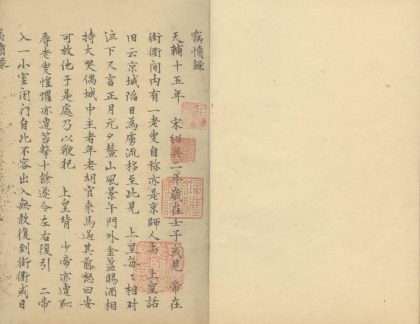 竊憤錄
天輔十五年 宋紹興二年歲在壬子或見 帝在
街衢間內有一老叟自称亦是京師人与 上皇話
旧云京城陷日為虜流移至此見 上皇每〻相對
泣下又言正月元夕鰲山風景午門外金盃賜酒相
持大哭偶城中主者年老胡官乘馬過其前怒曰安
可放他于是處乃以鞭 上皇背 少帝亦遭恥
辱老叟惶懼亦遭笞擊十餘遂令左右復引 二帝
入一小室闭门自此不容出入無敢復到街衢或日